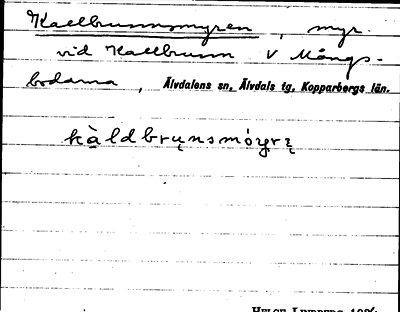 Kallbrunnsmyren, myr.
vid Kallbrunn V Mångs-
bodarna, Älvdalens sn, Älvdals tg, Kopparbergs län.
kàldbrųnsmóyrį
HELGE LINDBERG